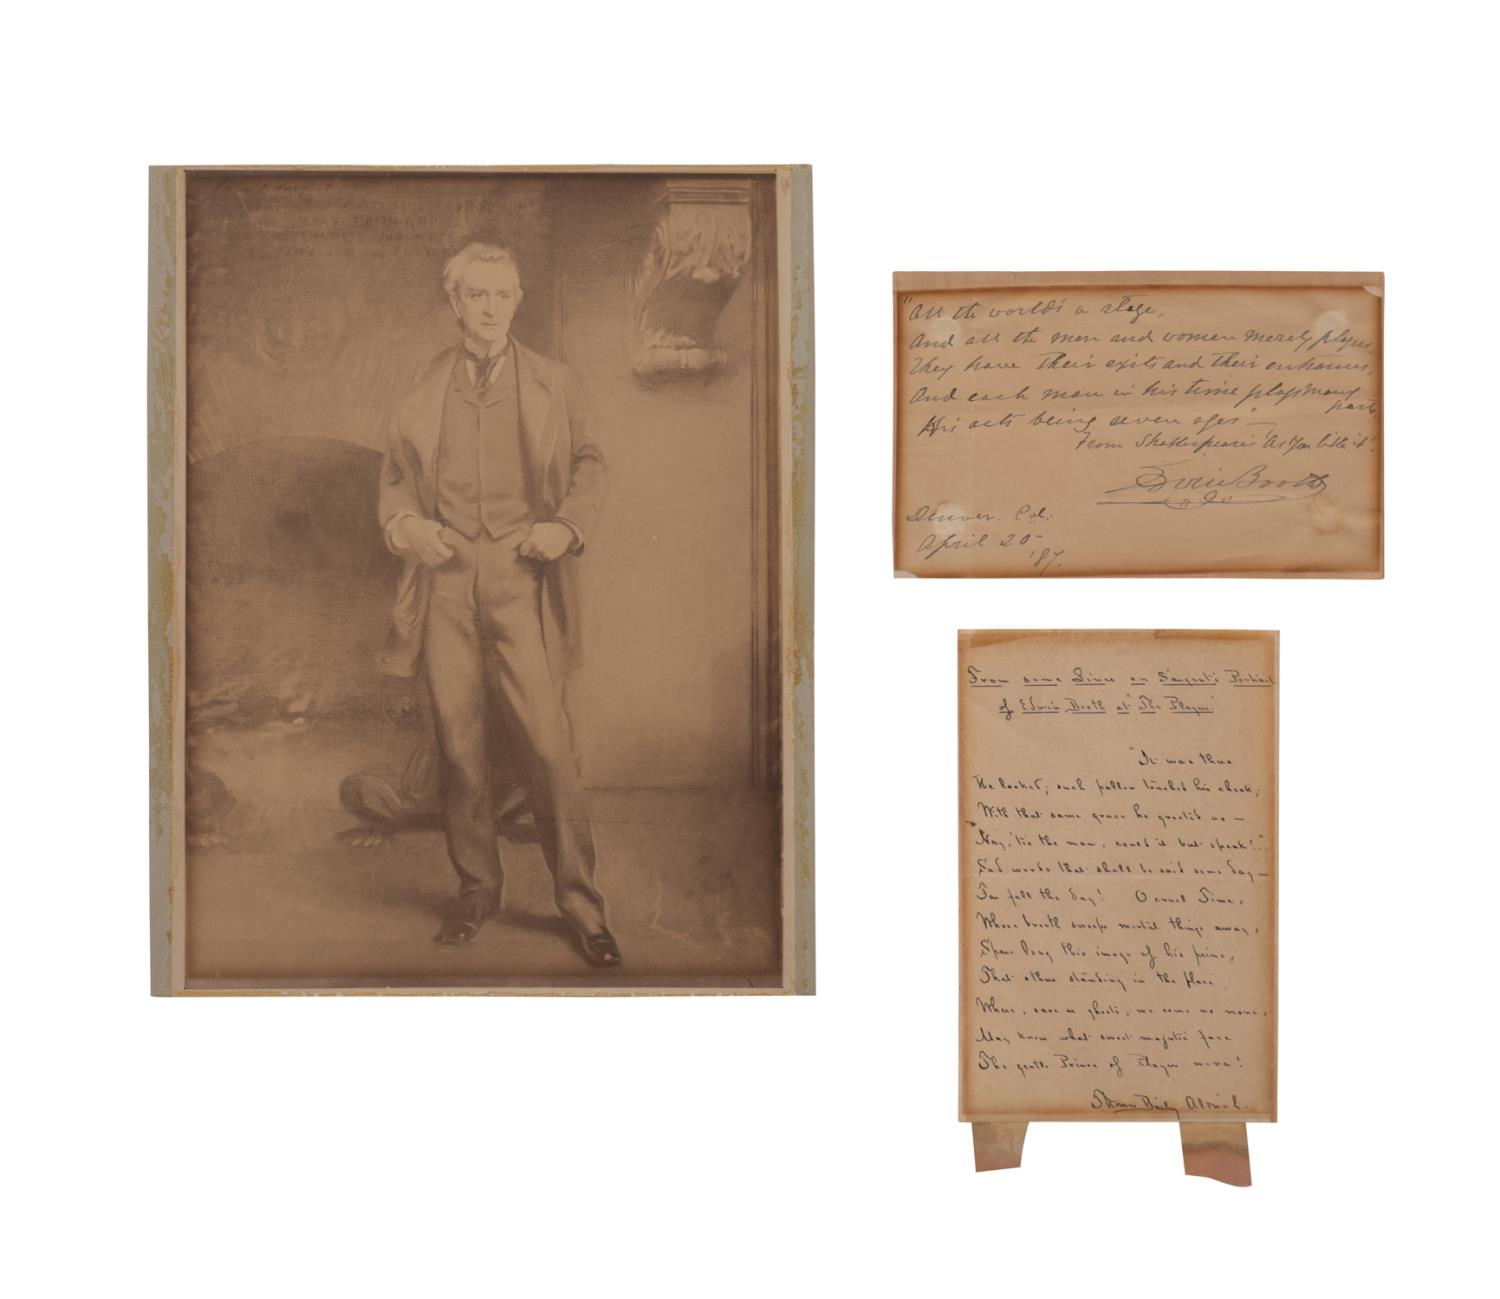 "All the world's a stage,
And all the men and women merely players,
They have their exits and their entrances,
And each man in his time plays many
parts,
His acts being seven ages" —
From Shakespeare's 'As You Like it'.
Edwin Booth
Denver. Col:
April 20-
'87.
From some Lines on Sargent's Portrait
of Edwin Booth at "The Players"
"It was thus
He looked; such pallor touched his cheek;
With that same grace he greeted us —
Nay, 'tis the man, could it but speak!"
Sad words that shall be said some day —
Far fall the day! O cruel Time,
Whose breath sweeps mortal things away,
Spare long this image of his prime,
That others standing in the place
Where, save as ghosts, we come no more,
May know what sweet majestic face
The gentle Prince of Players wore!
Thomas Bailey Aldrich.